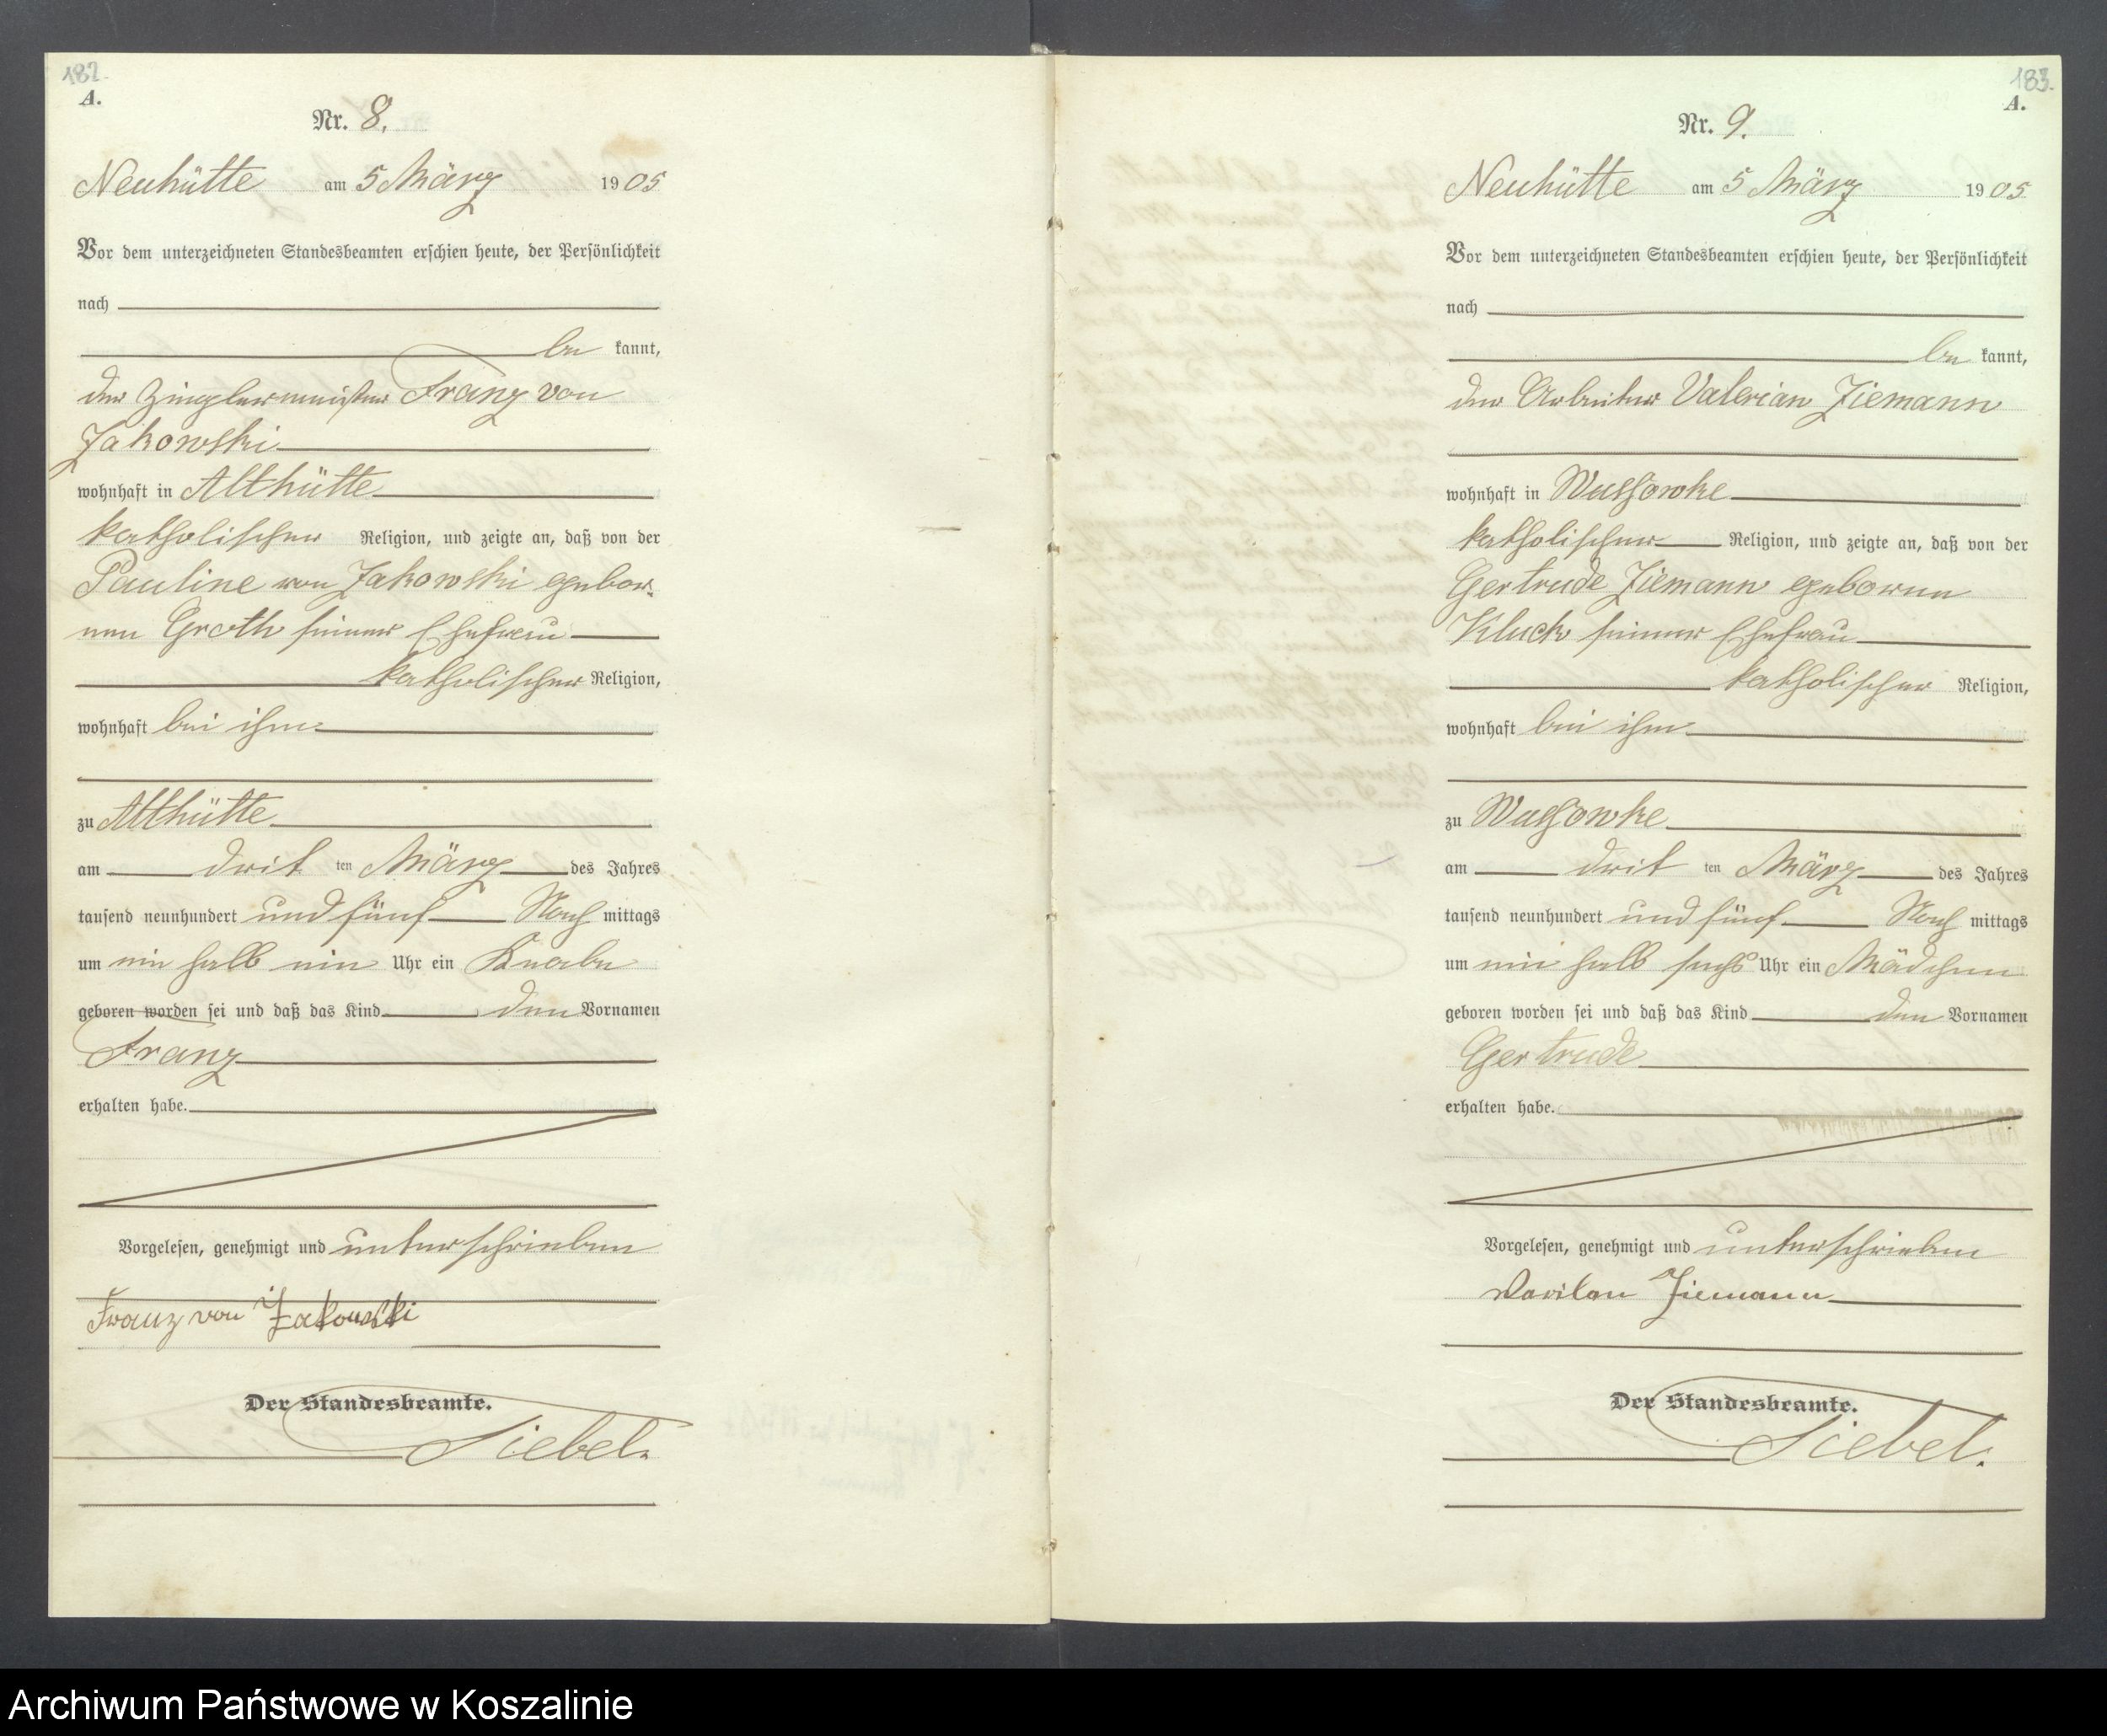 182.
A.
Nr. 8.
Neuhütte am 5 März 1905
Vor dem unterzeichneten Standesbeamten erschien heute, der Persönlichkeit
nach
be kannt,
der Zieglermeister Franz von
Jakowski
wohnhaft in Althütte
katholischer Religion, und zeigte an, daß von der
Pauline von Jakowski gebor-
nen Groth seiner Ehefrau
katholischer Religion,
wohnhaft bei ihm
zu Althütte
am drit ten März des Jahres
tausend neunhundert und fünf Nach mittags
um ein halb ein Uhr ein Knabe
geboren worden sei und daß das Kind den Vornamen
Franz
erhalten habe.
Vorgelesen, genehmigt und unterschrieben
Franz von Jakowski
Der Standesbeamte.
Siebel.
183.
A.
Nr. 9.
Neuhütte am 5 März 1905
Vor dem unterzeichneten Standesbeamten erschien heute, der Persönlichkeit
nach
be kannt,
der Arbeiter Valerian Ziemann
wohnhaft in Wussowke
katholischer Religion, und zeigte an, daß von der
Gertrude Ziemann geborene
Kluck seiner Ehefrau
katholischer Religion,
wohnhaft bei ihm
zu Wussowke
am drit ten März des Jahres
tausend neunhundert und fünf Nach mittags
um ein halb sechs Uhr ein Mädchen
geboren worden sei und daß das Kind den Vornamen
Gertrude
erhalten habe.
Vorgelesen, genehmigt und unterschrieben
Ziemann
Der Standesbeamte.
Siebel.
Archiwum Państwowe w Koszalinie